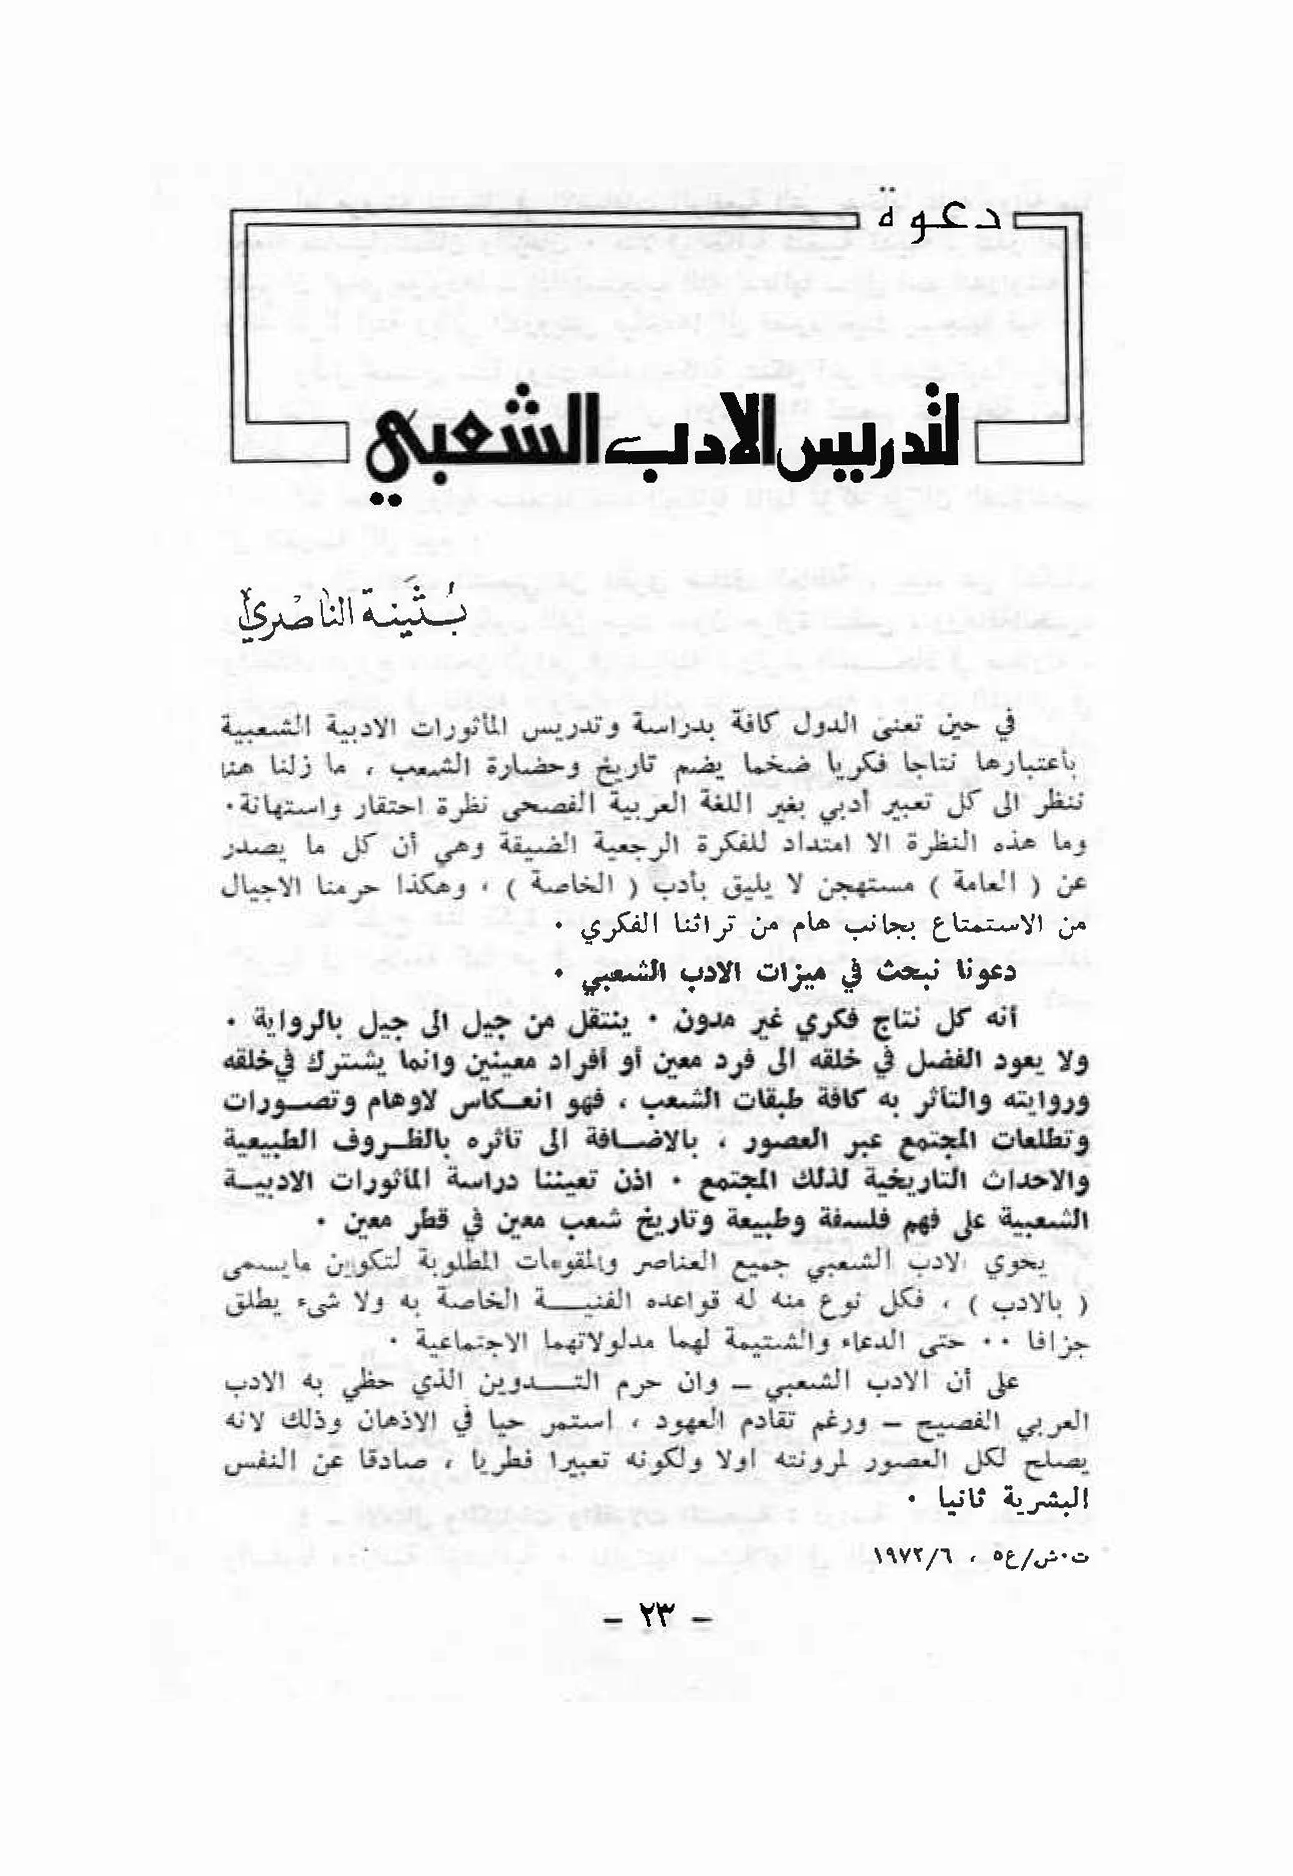 دعوة
لتدريس الادب الشعبي
بُثَينة الناصري
في حين تعنى الدول كافة بدراسة وتدريس المأثورات الادبية الشعبية
بأعتبارها نتاجا فكريا ضخما يضم تاريخ وحضارة الشعب ، ما زلنا هنا
ننظر الى كل تعبير أدبي بغير اللغة العربية الفصحى نظرة احتقار واستهانة ٠
وما هذه النظرة الا امتداد للفكرة الرجعية الضيقة وهي أن كل ما يصدر
عن ( العامة ) مستهجن لا يليق بأدب ( الخاصة ) ، وهكذا حرمنا الاجيال
من الاستمتاع بجانب هام من تراثنا الفكري ٠
دعونا نبحث في ميزات الادب الشعبي ٠
أنه كل نتاج فكري غير مدون ٠ ينتقل من جيل الى جيل بالرواية ٠
ولا يعود الفضل في خلقه الى فرد معين أو أفراد معينين وانما يشترك في خلقه
وروايته والتأثر به كافة طبقات الشعب ، فهو انعـكاس لاوهام وتصـورات
وتطلعات المجتمع عبر العصور ، بالاضـافة الى تأثره بالظـروف الطبيعية
والاحداث التاريخية لذلك المجتمع ٠ اذن تعيننا دراسة المأثورات الادبيـة
الشعبية على فهم فلسفة وطبيعة وتاريخ شعب معين في قطر معين ٠
يحوي الادب الشعبي جميع العناصر والمقومات المطلوبة لتكوين مايسمى
( بالادب ) ، فكل نوع منه له قواعده الفنيـــة الخاصة به ولا شىء يطلق
جزافا ٠٠ حتى الدعاء والشتيمة لهما مدلولاتهما الاجتماعية ٠
على أن الادب الشعبي ــ وان حرم التـــدوين الذي حظي به الادب
العربي الفصيح ــ ورغم تقادم العهود ، استمر حيا في الاذهان وذلك لانه
يصلح لكل العصور لمرونته اولا ولكونه تعبيرا فطريا ، صادقا عن النفس
البشرية ثانيا ٠
ت٠ش/ع٥ ، ١٩٧٢/٦
– ٢٣ –